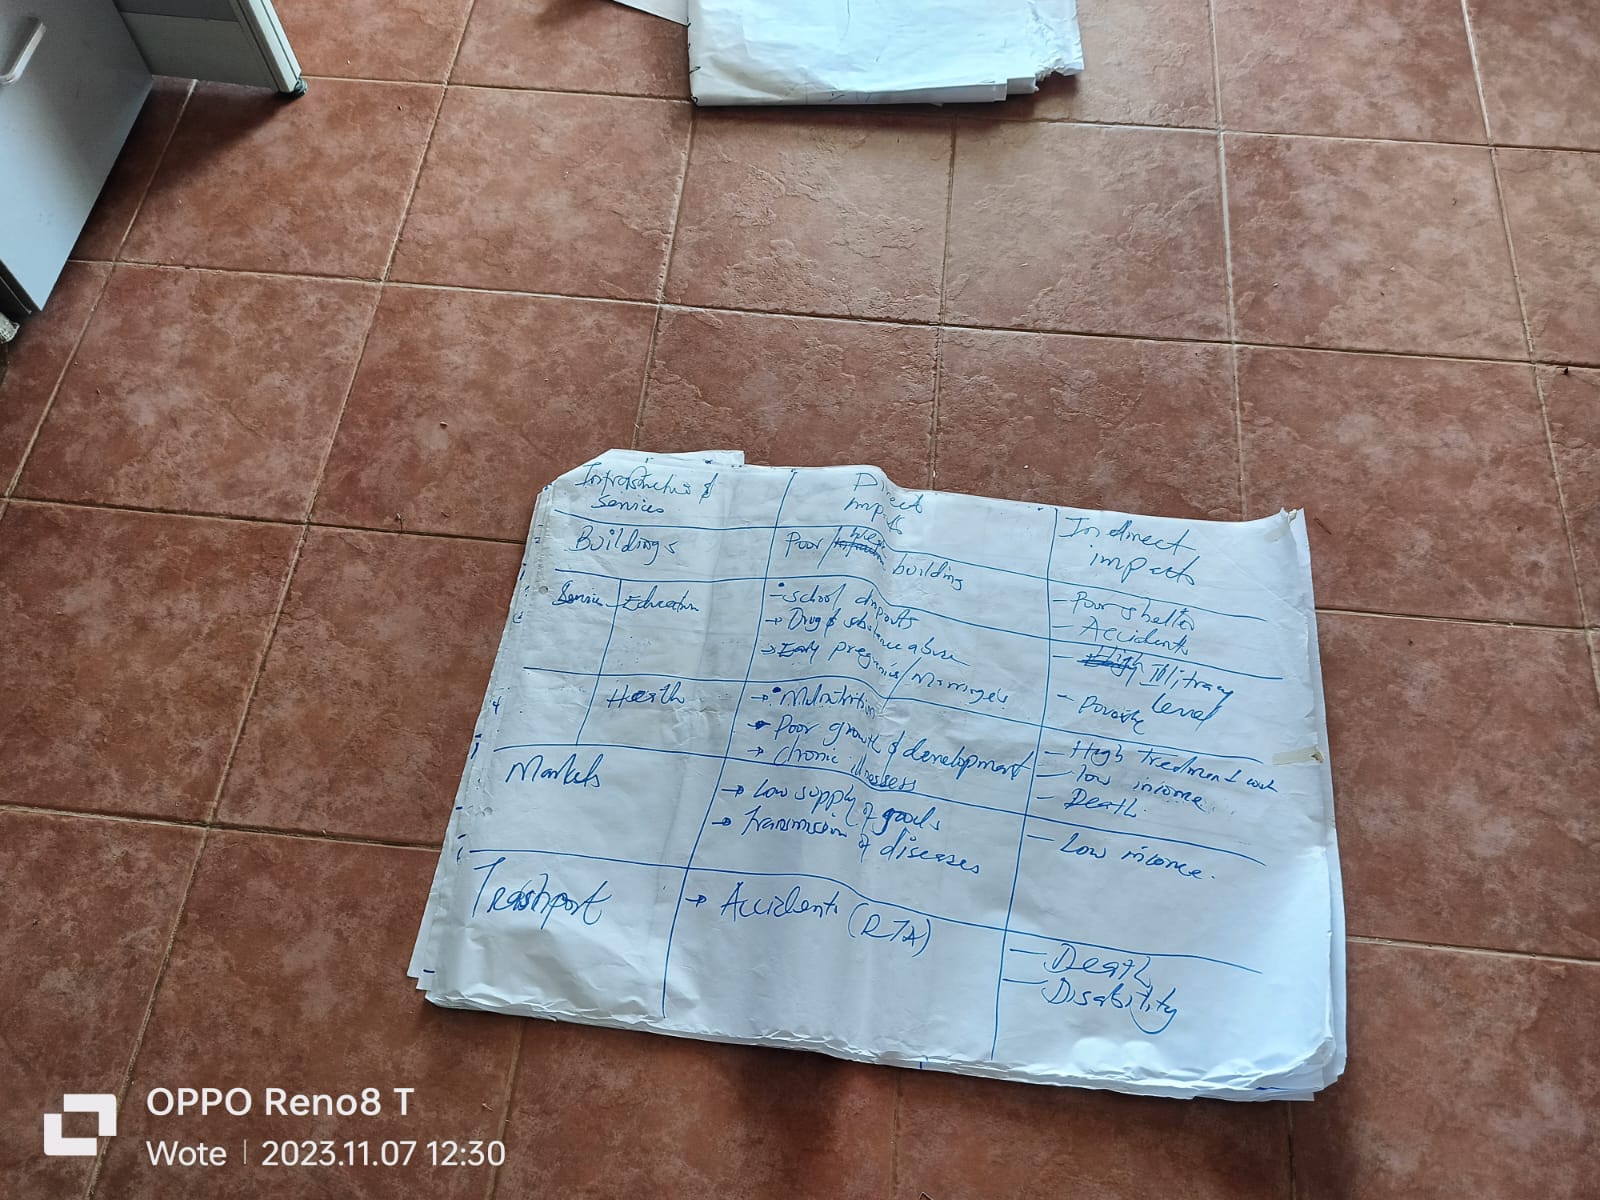 Infrastructure &
Services
Direct
impacts
Indirect
impacts
Buildings
Poor
building
- Poor shelter
- Accidents
Service
Education
- school dropouts
→ Drug & substance abuse
→ Early pregnancies/Marriages
- High Illitracy
level
- Poverty
Health
→ Malnutrition
Poor growth & development
→ chronic illnesses
- High treatment cost
- low income
- Death.
Markets
→ Low supply of goods
→ transmission of diseases
- Low income.
Transport
→ Accidents (RTA)
- Death
- Disability
OPPO Reno8 T
Wote | 2023.11.07 12:30